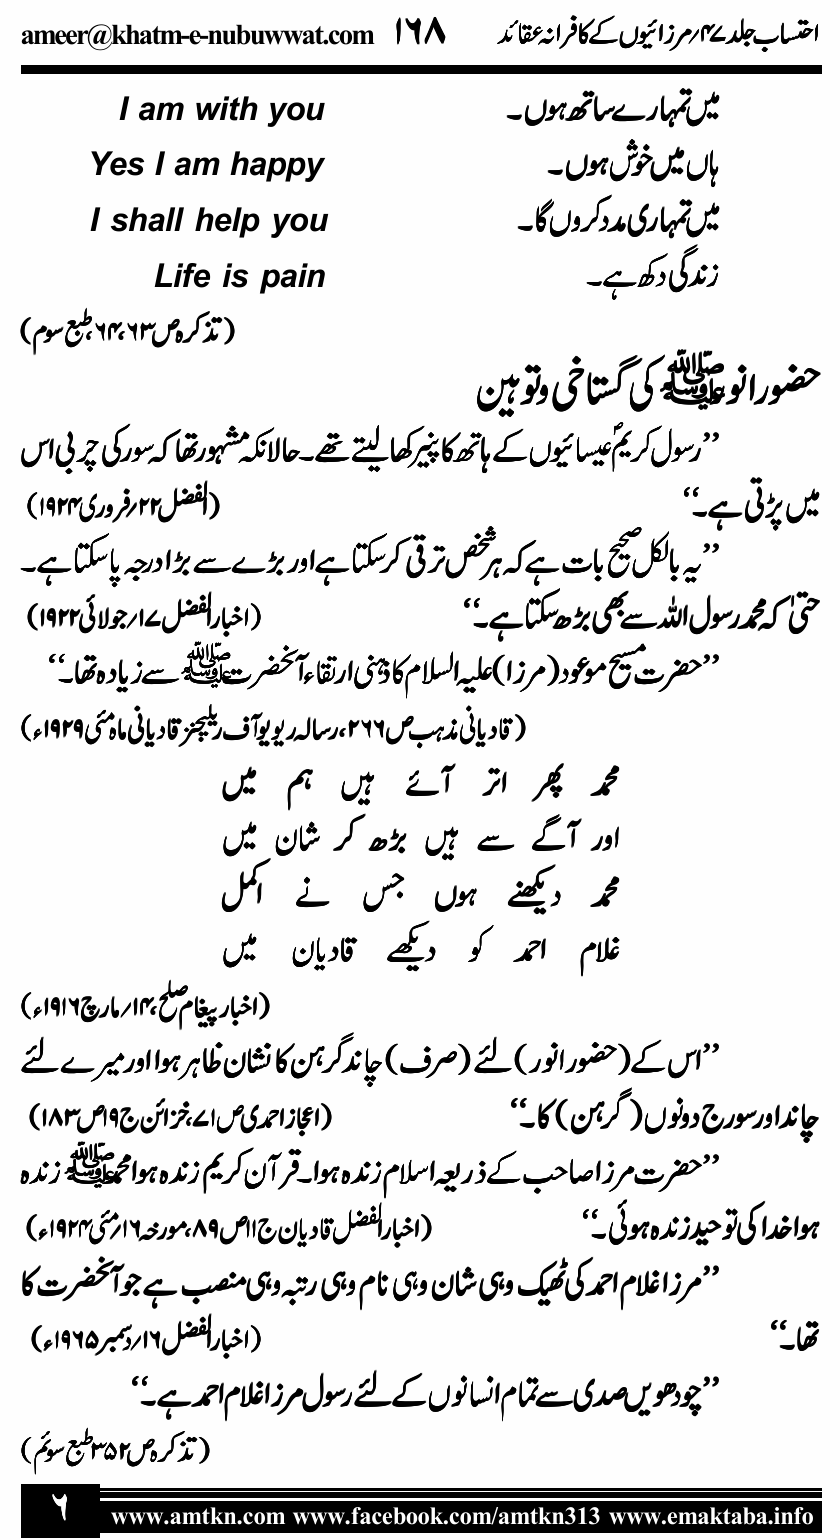 احتساب جلد ۴۷؍مرزائیوں کے کافرانہ عقائد ۱۶۸ ameer@khatm-e-nubuwwat.com
میں تمہارے ساتھ ہوں۔ I am with you
ہاں میں خوش ہوں۔ Yes I am happy
میں تمہاری مدد کروں گا۔ I shall help you
زندگی دکھ ہے۔ Life is pain
(تذکرہ ص۶۳،۶۴، طبع سوم)
حضور انو ﷺ کی گستاخی و توہین
’’رسول کریمؐ عیسائیوں کے ہاتھ کا پنیر کھا لیتے تھے۔ حالانکہ مشہور تھا کہ سور کی چربی اس
میں پڑتی ہے۔‘‘ (الفضل ۲۲؍فروری ۱۹۲۴)
’’یہ بالکل صحیح بات ہے کہ ہر شخص ترقی کر سکتا ہے اور بڑے سے بڑا درجہ پا سکتا ہے۔
حتیٰ کہ محمد رسول اللہ سے بھی بڑھ سکتا ہے۔‘‘ (اخبار الفضل ۱۷؍جولائی ۱۹۲۲)
’’حضرت مسیح موعود (مرزا) علیہ السلام کا ذہنی ارتقاء آنحضرت ﷺ سے زیادہ تھا۔‘‘
(قادیانی مذہب ص۲۶۶، رسالہ ریویو آف ریلیجنز قادیانی ماہ مئی ۱۹۲۹ء)
محمد پھر اتر آئے ہیں ہم میں
اور آگے سے ہیں بڑھ کر شان میں
محمد دیکھنے ہوں جس نے اکمل
غلام احمد کو دیکھے قادیان میں
(اخبار پیغام صلح، ۱۴؍مارچ ۱۹۱۶ء)
’’اس کے (حضور انور) لئے (صرف) چاند گرہن کا نشان ظاہر ہوا اور میرے لئے
چاند اور سورج دونوں (گرہن) کا۔‘‘ (اعجاز احمدی ص۷۱، خزائن ج۱۹ ص۱۸۳)
’’حضرت مرزا صاحب کے ذریعہ اسلام زندہ ہوا۔ قرآن کریم زندہ ہوا محمد ﷺ زندہ
ہوا خدا کی توحید زندہ ہوئی۔‘‘ (اخبار الفضل قادیان ج۱۱ ص۸۹، مورخہ ۱۶؍مئی ۱۹۲۴ء)
’’مرزا غلام احمد کی ٹھیک وہی شان وہی نام وہی رتبہ وہی منصب ہے جو آنحضرت کا
تھا۔‘‘ (اخبار الفضل ۱۶؍دسمبر ۱۹۶۵ء)
’’چودھویں صدی سے تمام انسانوں کے لئے رسول مرزا غلام احمد ہے۔‘‘
(تذکرہ ص۳۵۲ طبع سوئم)
۶ www.amtkn.com www.facebook.com/amtkn313 www.emaktaba.info